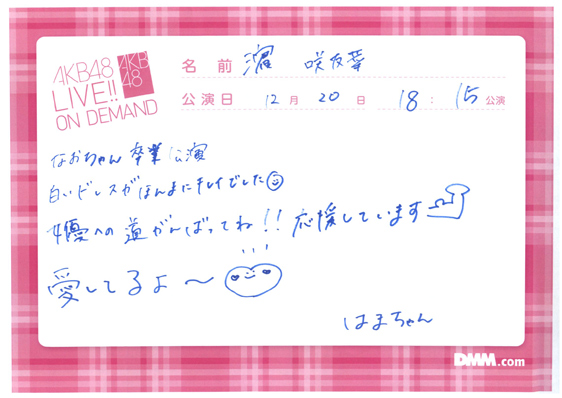 AKB48
LIVE!!
ON DEMAND
AKB
48
名前 濵 咲友菜
公演日 12月20日 18:15公演
なおちゃん卒業公演
白いドレスがほんまにキレイでした
女優への道がんばってね!!応援しています
愛してるよ〜
はまちゃん
DMM.com